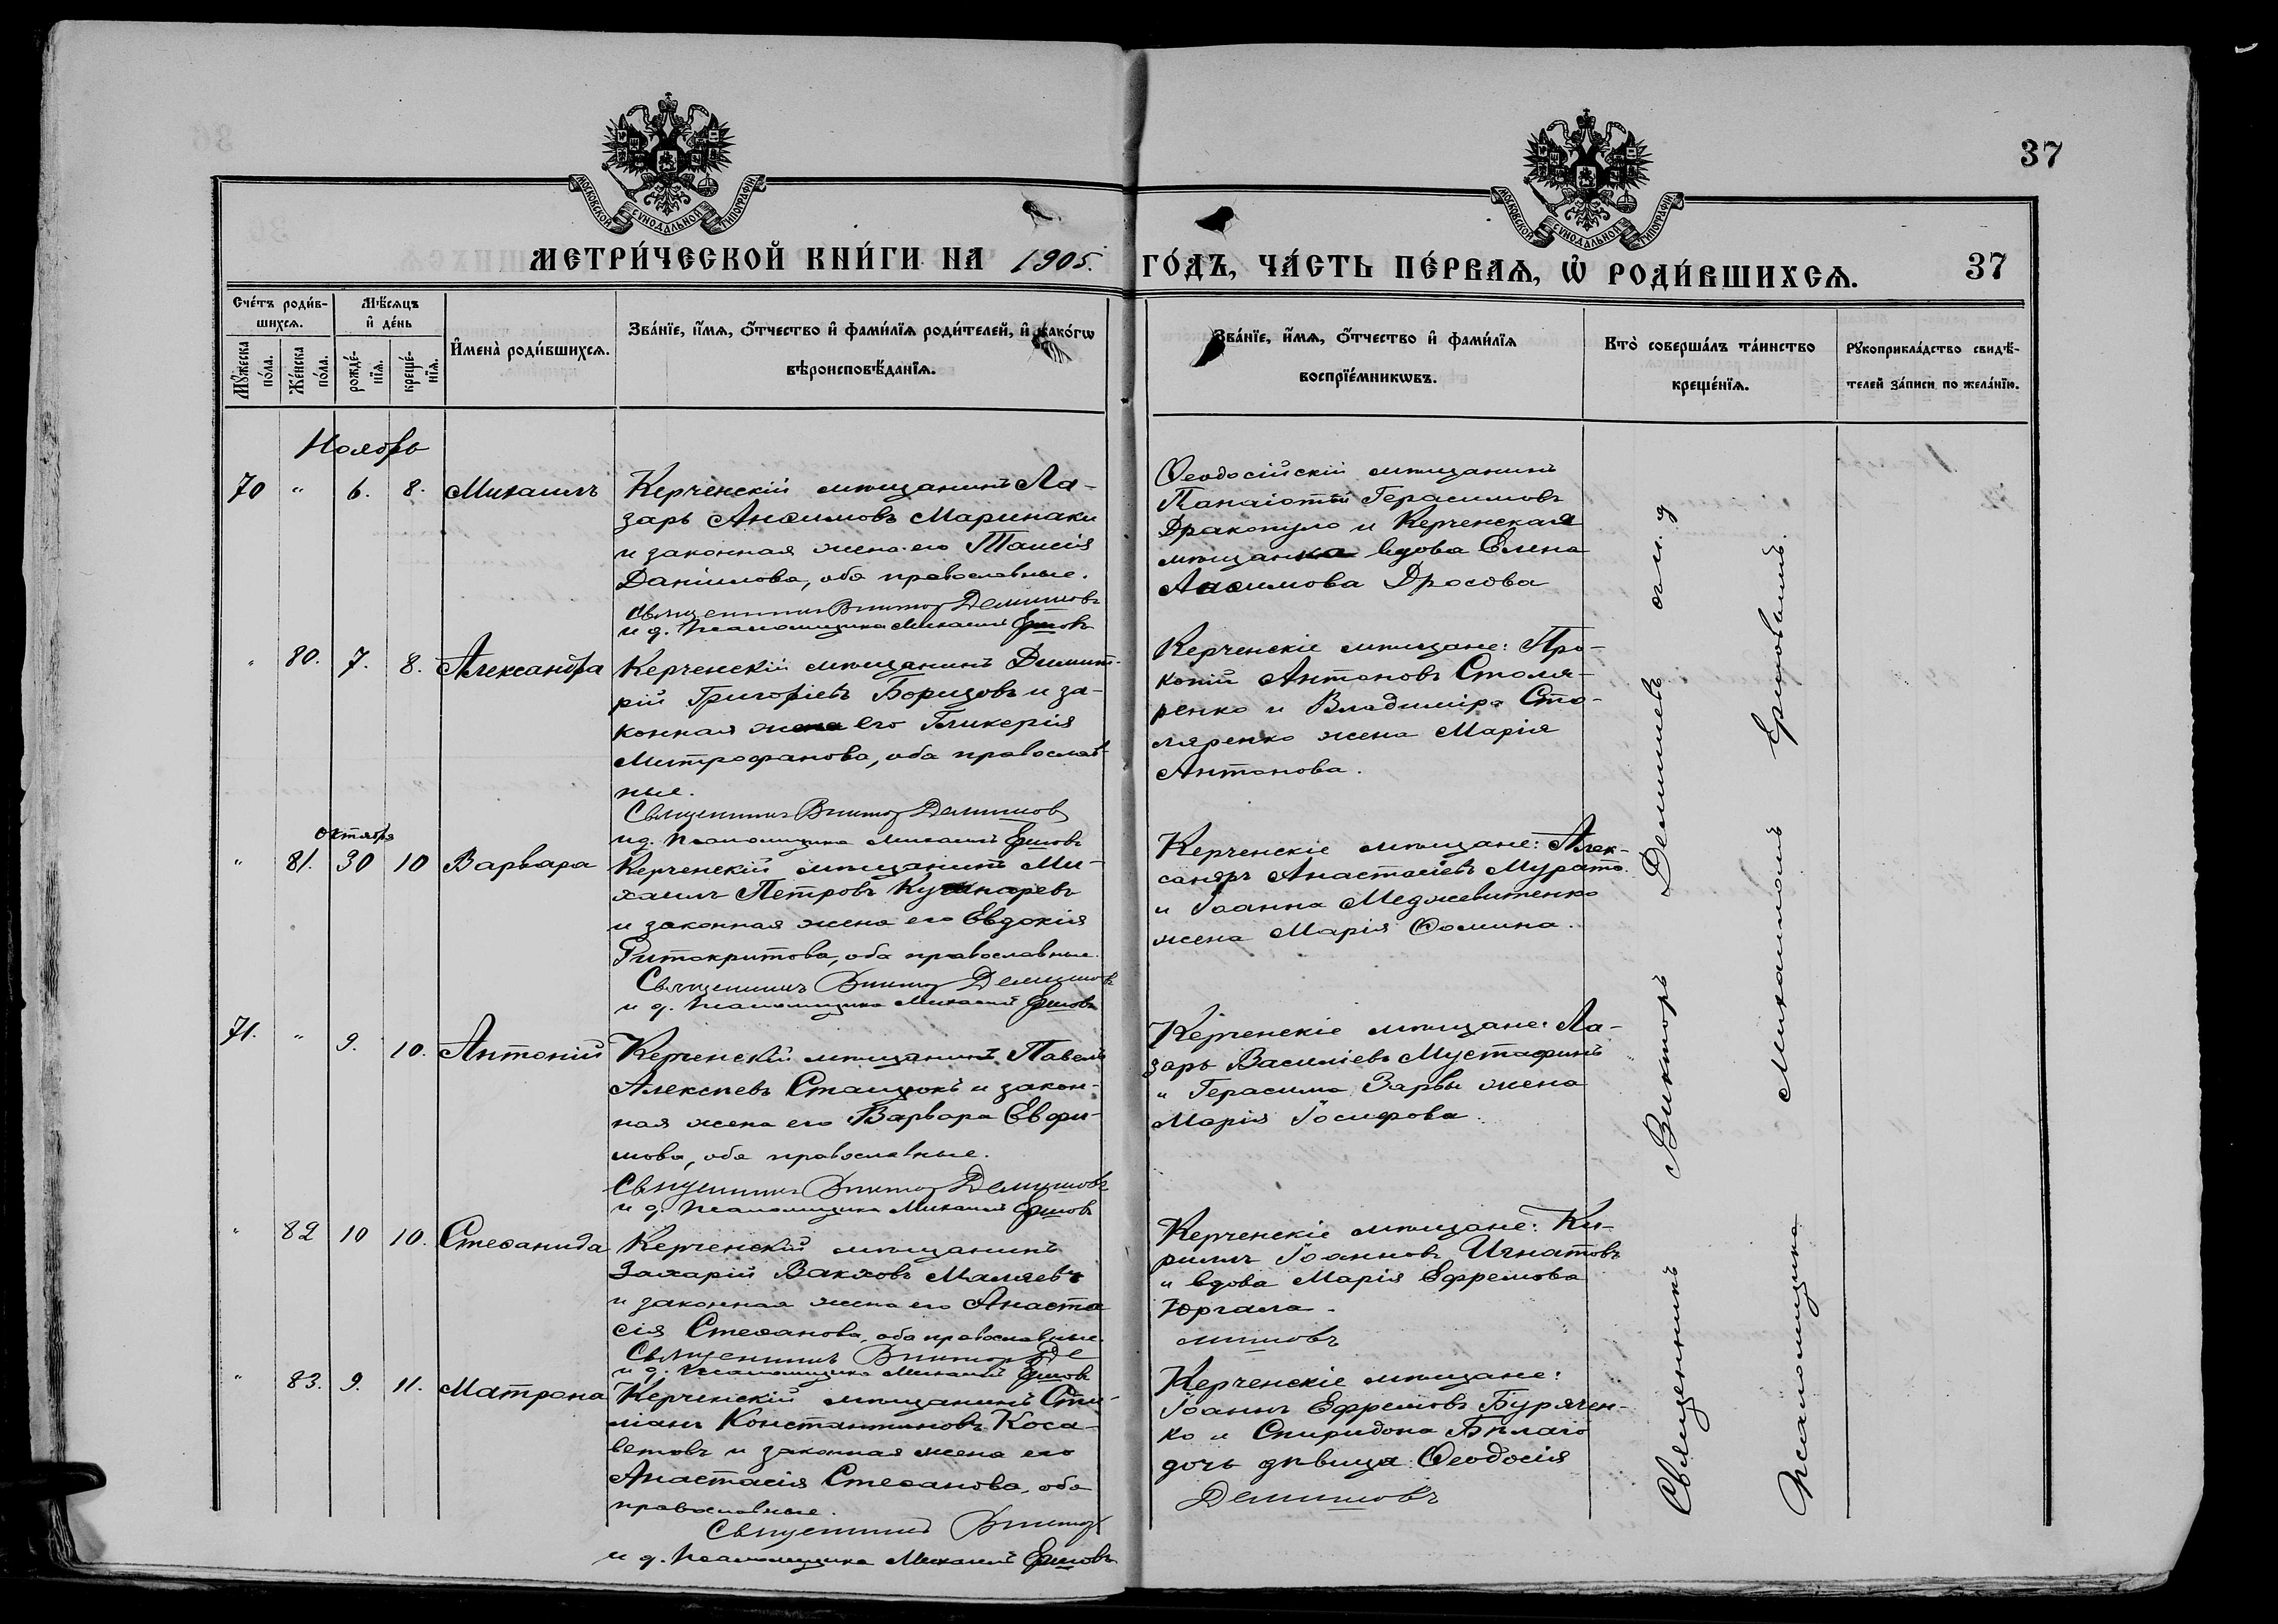 37
МОСКОВСКОЙ СѴНОДАЛЬНОЙ ТИПОГРАФІИ
МОСКОВСКОЙ СѴНОДАЛЬНОЙ ТИПОГРАФІИ
МЕТРИ́ЧЕСКОЙ КНИ́ГИ НА 1905. ГО́ДЪ, ЧА́СТЬ ПЕ́РВАѦ, Ѡ҆ РОДИ́ВШИХСѦ. 37
Сче́тъ роди́в-
шихсѧ.
Мѣ́сѧцъ
и҆ де́нь
Мꙋ́жеска
по́ла.
Же́нска
по́ла.
рожде́-
нїѧ.
креще́-
нїѧ.
И҆мена̀ роди́вшихсѧ.
Зва́нїе, и҆́мѧ, ѻ҆́тчество и҆ фами́лїѧ роди́телей, и҆ како́гѡ
вѣроисповѣ́данїѧ.
Зва́нїе, и҆́мѧ, ѻ҆́тчество и҆ фами́лїѧ
воспрїе́мникѡвъ.
Кто̀ соверша́лъ та́инство
креще́нїѧ.
Рꙋкоприкла́дство свидѣ́-
телей за́писи по жела́нїю.
Ноябрь
70 " 6. 8. Михаилъ
Керченскій мѣщанинъ Ла-
зарь Анѳимовъ Маринаки
и законная жена его Таисія
Даніилова, оба православные.
Священникъ Викторъ Демишовъ
и д. Псаломщика Михаилъ Ершовъ
Ѳеодосійскій мѣщанинъ
Панаіотъ Герасимовъ
Дракопуло и Керченская
мѣщанка вдова Елена
Дросова
" 80. 7. 8. Александра
Керченскій мѣщанинъ Димит-
рій Григорьевъ Борищовъ и за-
конная жена его Гликерія
Митрофанова, оба православ-
ные.
Священникъ Викторъ Демишовъ
и д. Псаломщика Михаилъ Ершовъ
Керченскіе мѣщане: Про-
копій Антоновъ Столя-
ренко и Владиміра Сто-
ляренко жена Марія
Антонова.
Октября
" 81. 30 10 Варвара
Керченскій мѣщанинъ Ми-
хаилъ Петровъ
и законная жена его Евдокія
оба православные.
Священникъ Викторъ Демишовъ
и д. Псаломщика Михаилъ Ершовъ
Керченскіе мѣщане: Алек-
сандръ Анастасіевъ Мурато
и Іоанна Меджевитенко
жена Марія Ѳомина.
71. " 9. 10. Антоній
Керченскій мѣщанинъ Павелъ
Алексѣевъ Стацюкъ и закон-
ная жена его Варвара Евфи-
мова, оба православные.
Священникъ Викторъ Демишовъ
и д. Псаломщика Михаилъ Ершовъ
Керченскіе мѣщане: Ла-
зарь Василіевъ Мустафинъ
и Герасима Зарвы жена
Марія Іосифова.
" 82 10 10. Стефанида
Керченскій мѣщанинъ
Захарій Вакховъ Маляевъ
и законная жена его Анаста
сія Стефанова, оба православные.
Священникъ Викторъ Де
мишовъ
и д. Псаломщика Михаилъ Ершовъ
Керченскіе мѣщане: Ки-
риллъ Іоанновъ Игнатовъ
и вдова Марія Ефремова
Юргала.
" 83. 9. 11. Матрона
Керченскій мѣщанинъ Сти-
ліанъ Константиновъ Коса-
ветовъ и законная жена его
Анастасія Стефанова, оба
православные.
Священникъ Викторъ
Демишовъ
и д. Псаломщика Михаилъ Ершовъ
Керченскіе мѣщане:
Іоаннъ Ефремовъ Бурячен-
ко и Спиридона Бѣлаго
дочь дѣвица Ѳеодосія
Священникъ Викторъ Демишевъ съ и. д.
Псаломщика Михаиломъ Ершовымъ.